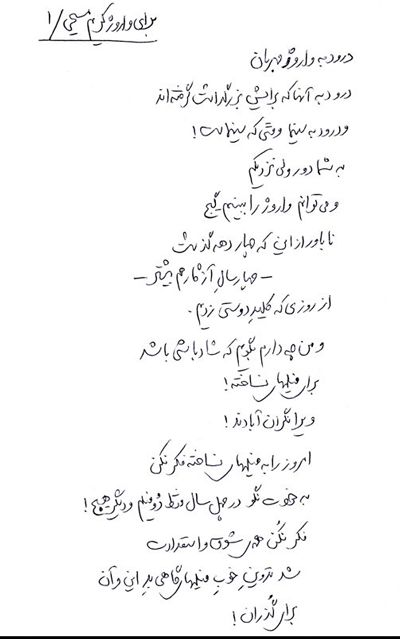 برای واروژ کریم مسیحی / ۱
درود به واروژ مهربان
درود به آنها که برایش بزرگداشت گرفته‌اند
و درود به سینما وقتی که سینماست!
به شما دور ولی نزدیکم
و می‌توانم واروژ را ببینم گیج
ناباور از این که چهار دهه گذشت
– چهار سال آزگار هم بیشتر –
از روزی که کلید دوستی زدیم.
و من چه دارم بگویم که شادباشی باشد
برای فیلمهای نساخته!
ویرانگران آبادند!
امروز را به فیلمهای نساخته فکر نکن
به خودت نگو در چهل سال فقط دو فیلم و دیگر هیچ!
فکر نکن همه‌ی شوق و استعدادت
شد تدوینِ خوبِ فیلمهای گاهی بدِ این و آن
برای گذران!